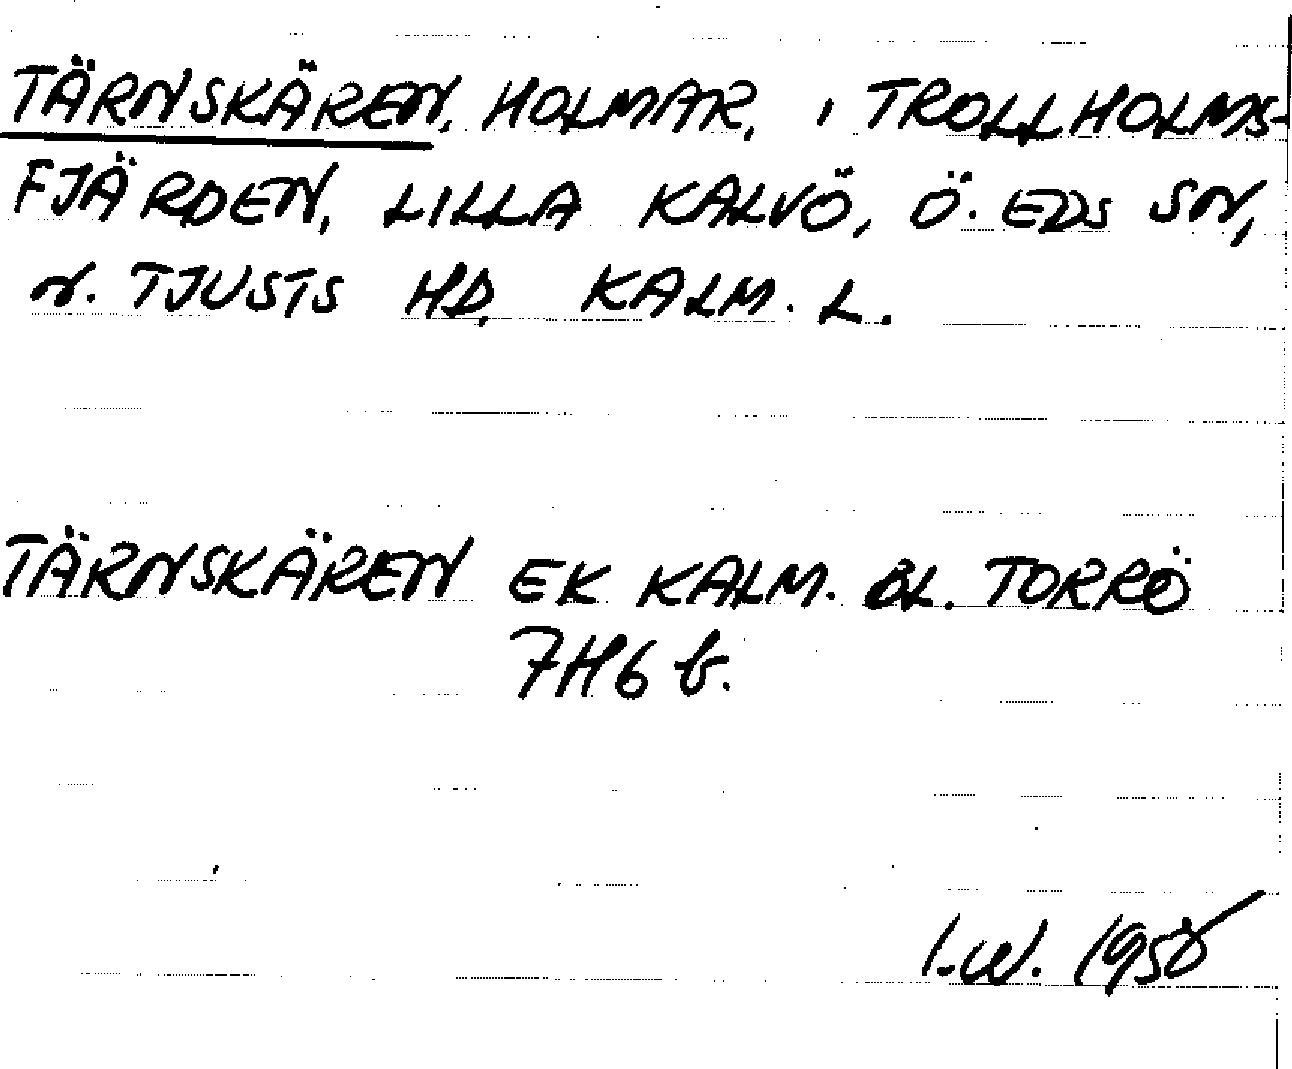 TÄRNSKÄREN, HOLMAR, I TROLLHOLMS-
FJÄRDEN, LILLA KALVÖ, Ö. EDS SN,
N. TJUSTS HD, KALM. L.
TÄRNSKÄREN EK KALM. BL. TORRÖ
7H6 b.
I.W. 1958